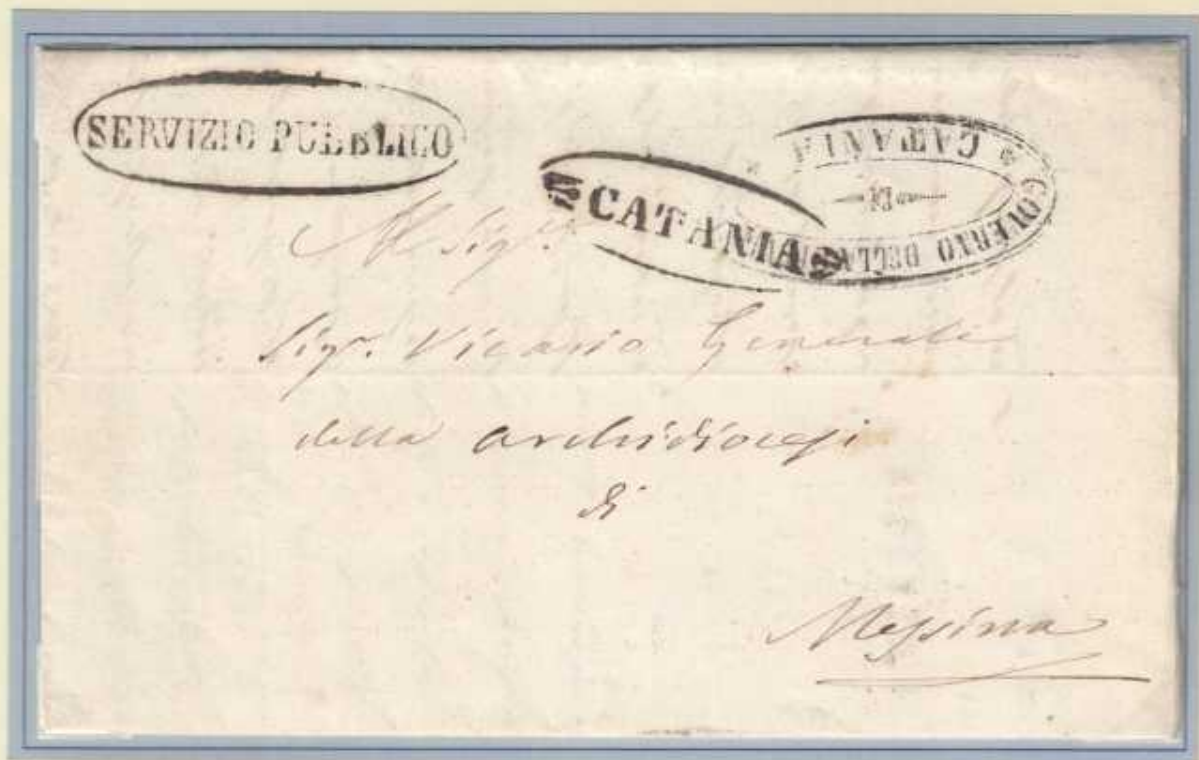 SERVIZIO PUBBLICO
CATANIA
GOVERNO DELLA
DI
CATANIA
Al Sigr.
Sigr. Vicario Generale
della archidiocesi
di
Messina